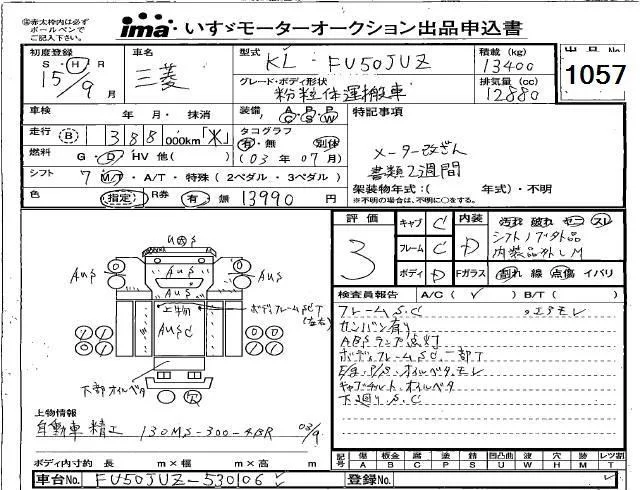 ※赤太枠内は必ず
ボールペンで
ご記入下さい。
ima・いすゞモーターオークション出品申込書
初度登録
S・H・R
15/9月
車名
三菱
型式
KL-FU50JUZ
グレード・ボディ形状
粉粒体運搬車
積載(kg)
13400
排気量(cc)
12880
出品No.
1057
車検
年 月・抹消
装備
A/C P/S P/W
特記事項
メーター改ざん
書類2週間
走行
B 388 000km「米」
タコグラフ
有・無 別体
(03年07月)
燃料
G・D HV 他( )
シフト
7 M/T・A/T・特殊(2ペダル・3ペダル)
架装物年式:( 年式)・不明
※不明の場合は、不明に○をする。
色
指定
R券
有・無 13990 円
評価
3
キャブ C
フレーム C
ボディ D
内装 D
汚れ 破れ ヤニ スレ
シフトノブ外品
内装品外しM
Fガラス
割れ 線 点傷 イバリ
U大S
AUS
AUS
AUS
AUS
上物
AUSC
ボディフレームSCT
(左右)
下部オイルベタ
検査員報告
A/C( ✓ ) B/T( )
フレームS.C ・エアモレ
カンバン有り
ABSランプ点灯
ボディフレームSC一部T
E/g.P/S.オイルベタモレ
キャブチルト.オイルベタ
下廻りS.C
上物情報
自動車精工 130MS-300-4BR 03/9
ボディ内寸約 長 m×幅 m×高 m
記号 傷A 板金B 腐C 塗P 錆S 凹凸曲U 波W 穴H 跡M レツ割T
車台No. FU50JUZ-530106
登録No.